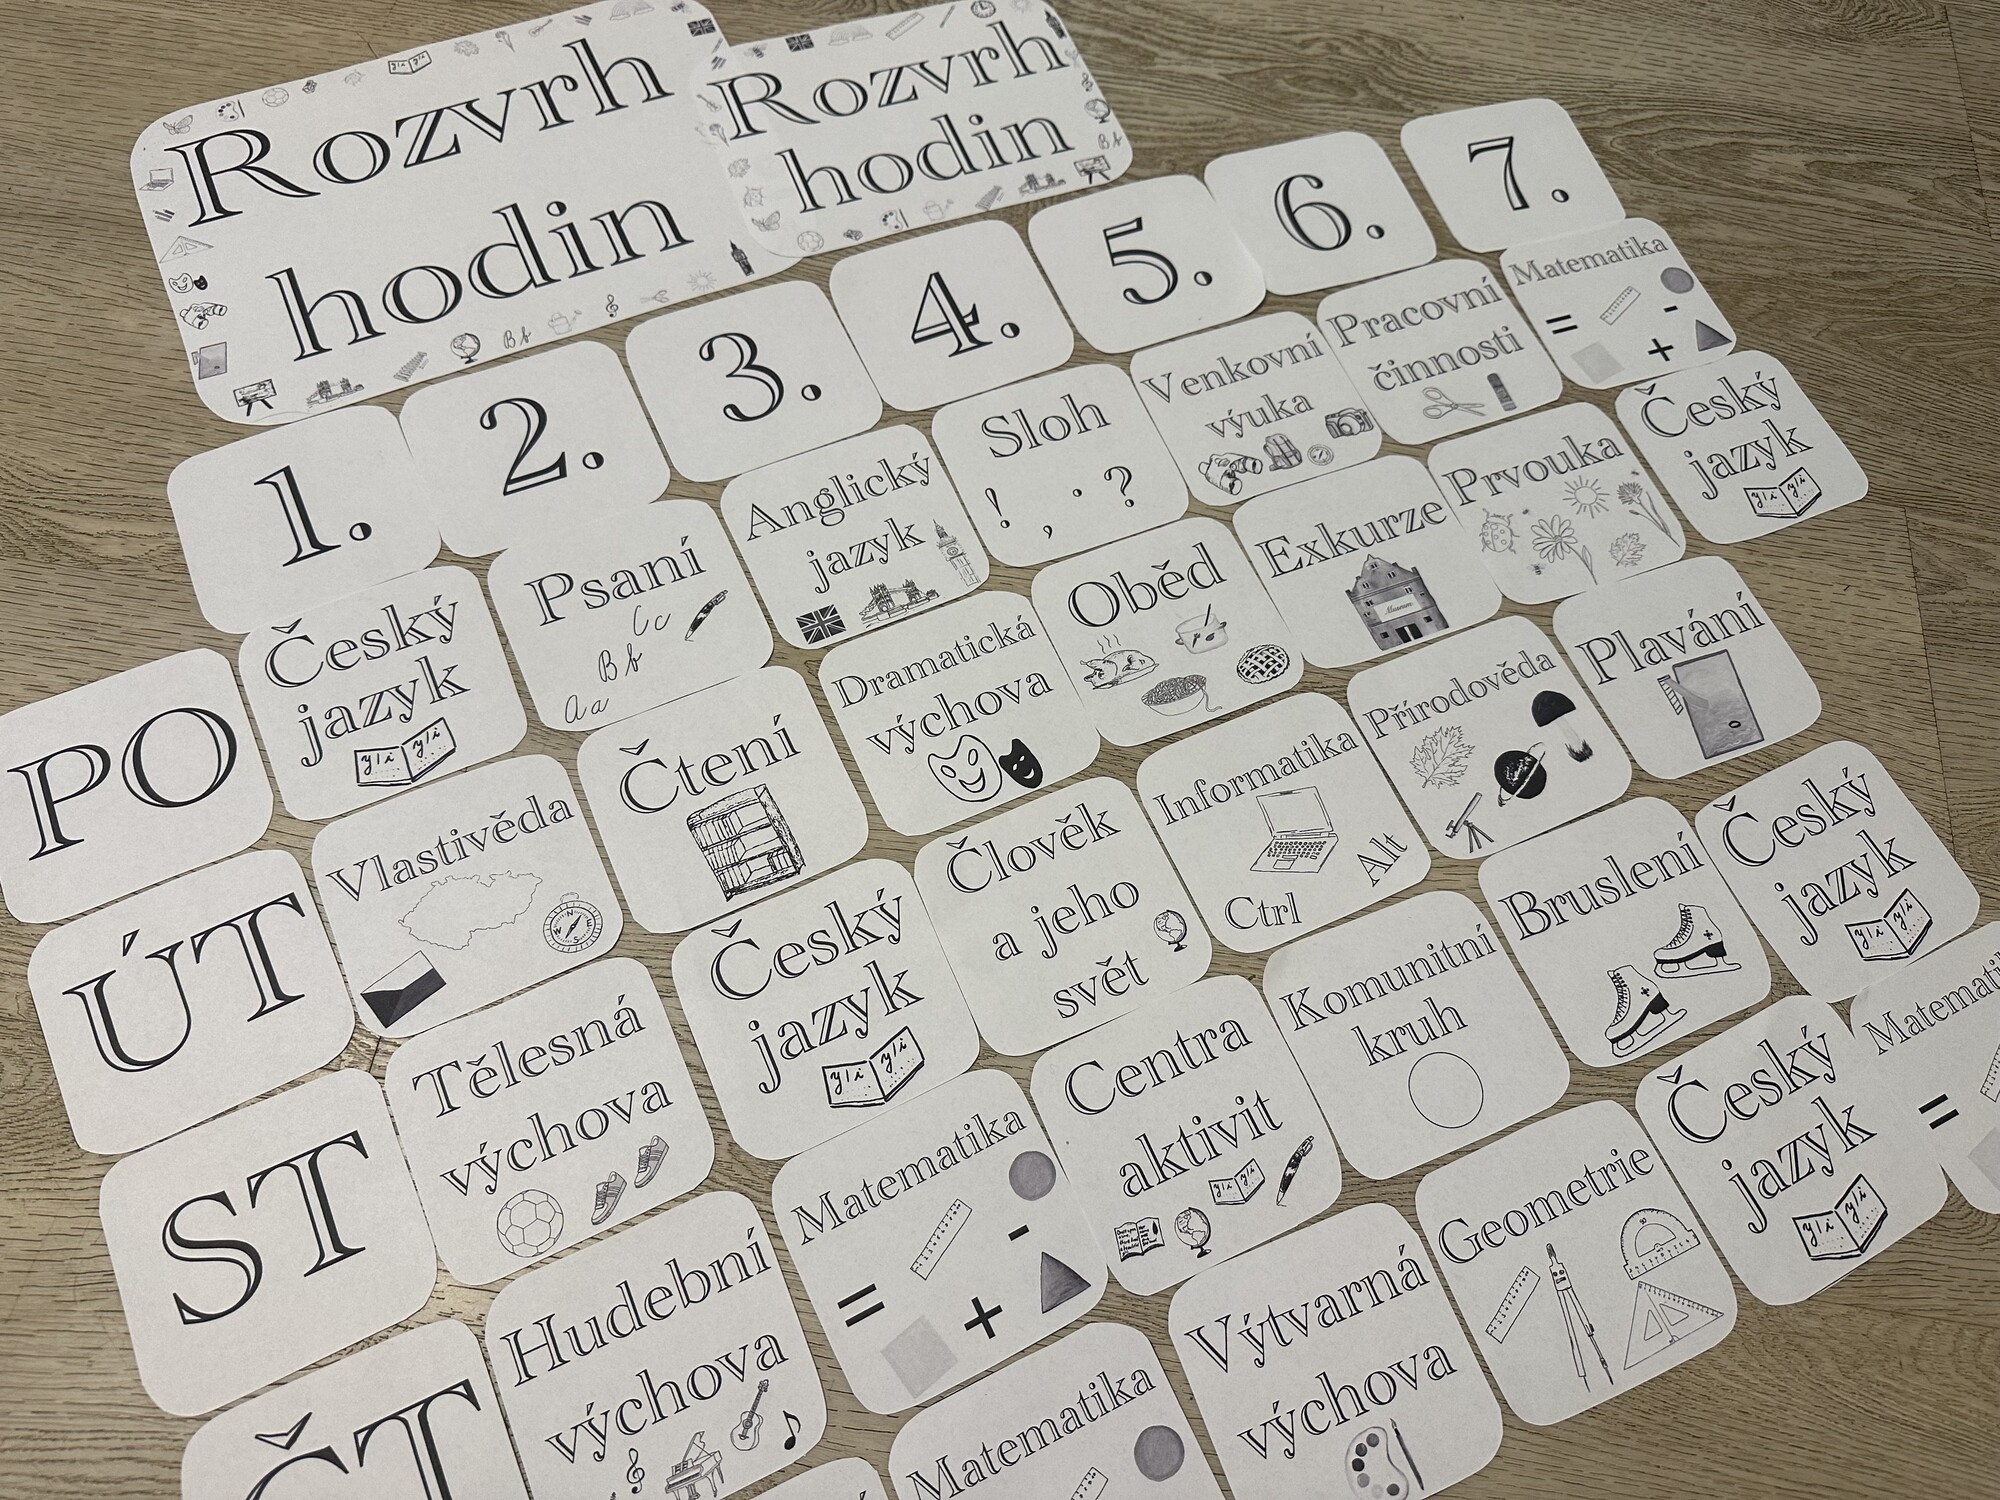 Rozvrh
hodin
Rozvrh
hodin
1.
2.
3.
4.
5.
6.
7.
PO
Český
jazyk
Psaní
Cc
Bb
Aa
Anglický
jazyk
Sloh
! , . ?
Venkovní
výuka
Pracovní
činnosti
Matematika
= - +
ÚT
Vlastivěda
Čtení
Dramatická
výchova
Oběd
Exkurze
Museum
Prvouka
Český
jazyk
ST
Tělesná
výchova
Český
jazyk
Člověk
a jeho
svět
Informatika
Ctrl
Alt
Přírodověda
Plavání
ČT
Hudební
výchova
Matematika
= - +
Centra
aktivit
Komunitní
kruh
Bruslení
Český
jazyk
Matematika
Výtvarná
výchova
Geometrie
Český
jazyk
Matemati
=